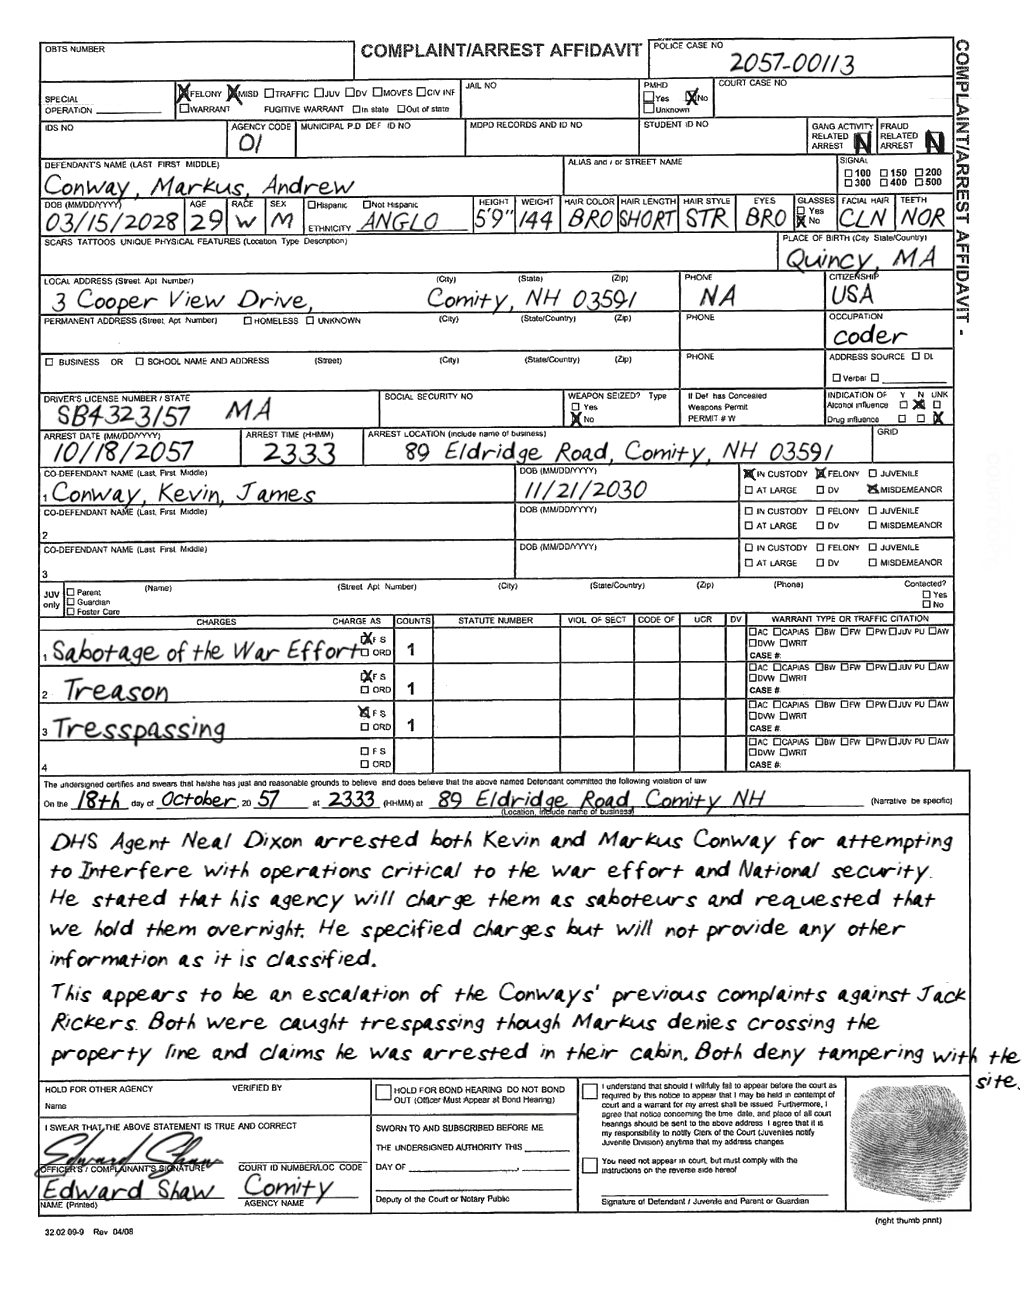 OBTS NUMBER
COMPLAINT/ARREST AFFIDAVIT
POLICE CASE NO
2057-00113
COMPLAINT/ARREST AFFIDAVIT -
SPECIAL
OPERATION
FELONY MISD TRAFFIC JUV DV MOVES CIV INF
WARRANT FUGITIVE WARRANT In state Out of state
JAIL NO
PMHD
Yes No
Unknown
COURT CASE NO
IDS NO
AGENCY CODE
01
MUNICIPAL P.D DEF ID NO
MDPD RECORDS AND ID NO
STUDENT ID NO
GANG ACTIVITY
RELATED
ARREST N
FRAUD
RELATED
ARREST N
DEFENDANT'S NAME (LAST FIRST MIDDLE)
Conway, Markus, Andrew
ALIAS and / or STREET NAME
SIGNAL
100 150 200
300 400 500
DOB (MM/DD/YYYY) AGE RACE SEX Hispanic Not Hispanic HEIGHT WEIGHT HAIR COLOR HAIR LENGTH HAIR STYLE EYES GLASSES FACIAL HAIR TEETH
03/15/2028 29 W M ETHNICITY ANGLO 5'9" 144 BRO SHORT STR BRO Yes No CLN NOR
SCARS TATTOOS UNIQUE PHYSICAL FEATURES (Location Type Description)
PLACE OF BIRTH (City State/Country)
Quincy, MA
LOCAL ADDRESS (Street Apt Number) (City) (State) (Zip)
3 Cooper View Drive, Comity, NH 03591
PHONE
NA
CITIZENSHIP
USA
PERMANENT ADDRESS (Street, Apt Number) HOMELESS UNKNOWN (City) (State/Country) (Zip)
PHONE
OCCUPATION
coder
BUSINESS OR SCHOOL NAME AND ADDRESS (Street) (City) (State/Country) (Zip)
PHONE
ADDRESS SOURCE DL
Verbal
DRIVER'S LICENSE NUMBER / STATE
SB4323157 MA
SOCIAL SECURITY NO
WEAPON SEIZED? Type
Yes
No
If Def has Concealed
Weapons Permit
PERMIT # W
INDICATION OF Y N UNK
Alcohol influence
Drug influence
ARREST DATE (MM/DD/YYYY)
10/18/2057
ARREST TIME (HHMM)
2333
ARREST LOCATION (include name of business)
89 Eldridge Road, Comity, NH 03591
GRID
CO-DEFENDANT NAME (Last, First Middle)
1 Conway, Kevin, James
DOB (MM/DD/YYYY)
11/21/2030
IN CUSTODY FELONY JUVENILE
AT LARGE DV MISDEMEANOR
CO-DEFENDANT NAME (Last, First Middle)
2
DOB (MM/DD/YYYY)
IN CUSTODY FELONY JUVENILE
AT LARGE DV MISDEMEANOR
CO-DEFENDANT NAME (Last, First Middle)
3
DOB (MM/DD/YYYY)
IN CUSTODY FELONY JUVENILE
AT LARGE DV MISDEMEANOR
JUV
only
Parent
Guardian
Foster Care
(Name) (Street Apt Number) (City) (State/Country) (Zip) (Phone) Contacted?
Yes
No
CHARGES CHARGE AS COUNTS STATUTE NUMBER VIOL OF SECT CODE OF UCR DV WARRANT TYPE OR TRAFFIC CITATION
1 Sabotage of the War Effort F S ORD 1
AC CAPIAS BW FW PW JUV PU AW
DVW WRIT
CASE #:
2 Treason F S ORD 1
AC CAPIAS BW FW PW JUV PU AW
DVW WRIT
CASE #
3 Tresspassing F S ORD 1
AC CAPIAS BW FW PW JUV PU AW
DVW WRIT
CASE #.
4 F S ORD
AC CAPIAS BW FW PW JUV PU AW
DVW WRIT
CASE #:
The undersigned certifies and swears that he/she has just and reasonable grounds to believe and does believe that the above named Defendant committed the following violation of law
On the 18th day of October, 20 57 at 2333 (HHMM) at 89 Eldridge Road, Comity NH (Narrative be specific)
(Location, include name of business)
DHS Agent Neal Dixon arrested both Kevin and Markus Conway for attempting
to Interfere with operations critical to the war effort and National security.
He stated that his agency will charge them as saboteurs and requested that
we hold them overnight. He specified charges but will not provide any other
information as it is classified.
This appears to be an escalation of the Conways' previous complaints against Jack
Rickers. Both were caught trespassing though Markus denies crossing the
property line and claims he was arrested in their cabin. Both deny tampering with the
site.
HOLD FOR OTHER AGENCY VERIFIED BY
Name
HOLD FOR BOND HEARING DO NOT BOND
OUT (Officer Must Appear at Bond Hearing)
I SWEAR THAT THE ABOVE STATEMENT IS TRUE AND CORRECT
Edward Shaw
OFFICER'S / COMPLAINANT'S SIGNATURE COURT ID NUMBER/LOC CODE
Edward Shaw Comity
NAME (Printed) AGENCY NAME
SWORN TO AND SUBSCRIBED BEFORE ME
THE UNDERSIGNED AUTHORITY THIS
DAY OF
Deputy of the Court or Notary Public
I understand that should I willfully fail to appear before the court as
required by this notice to appear that I may be held in contempt of
court and a warrant for my arrest shall be issued. Furthermore, I
agree that notice concerning the time date, and place of all court
hearings should be sent to the above address I agree that it is
my responsibility to notify Clerk of the Court (Juveniles notify
Juvenile Division) anytime that my address changes
You need not appear in court, but must comply with the
instructions on the reverse side hereof
Signature of Defendant / Juvenile and Parent or Guardian
(right thumb print)
32.02 09-9 Rev 04/08